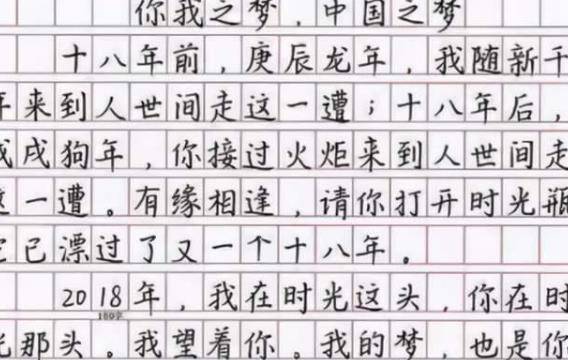 你我之梦，中国之梦
十八年前，庚辰龙年，我随新千
年来到人世间走这一遭；十八年后，
戊戌狗年，你接过火炬来到人世间走
这一遭。有缘相逢，请你打开时光瓶
它已漂过了又一个十八年。
2018年，我在时光这头，你在时
160字
光那头。我望着你。我的梦，也是你